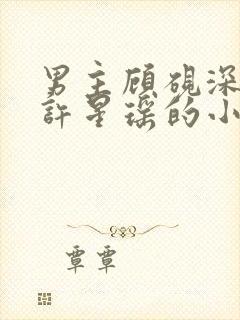 男主顾砚深
許星瑶的小
覃覃